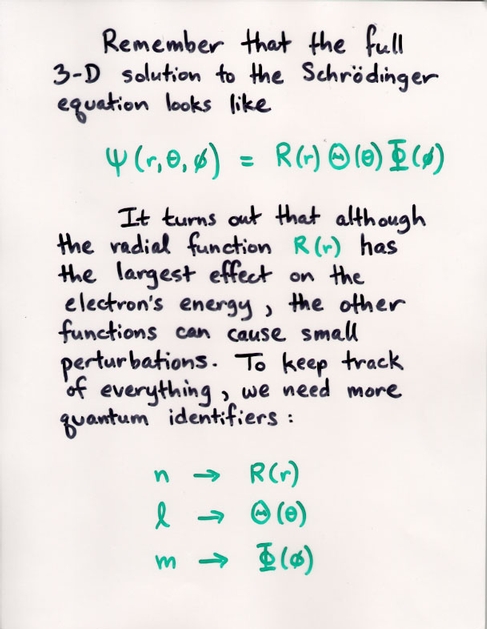 Remember that the full
3-D solution to the Schrödinger
equation looks like
Ψ(r,θ,ϕ) = R(r) Θ(θ) Φ(ϕ)
It turns out that although
the radial function R(r) has
the largest effect on the
electron's energy, the other
functions can cause small
perturbations. To keep track
of everything, we need more
quantum identifiers:
n → R(r)
l → Θ(θ)
m → Φ(ϕ)